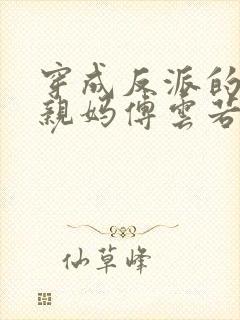 穿成反派的
親妈傅雲若
仙草峰